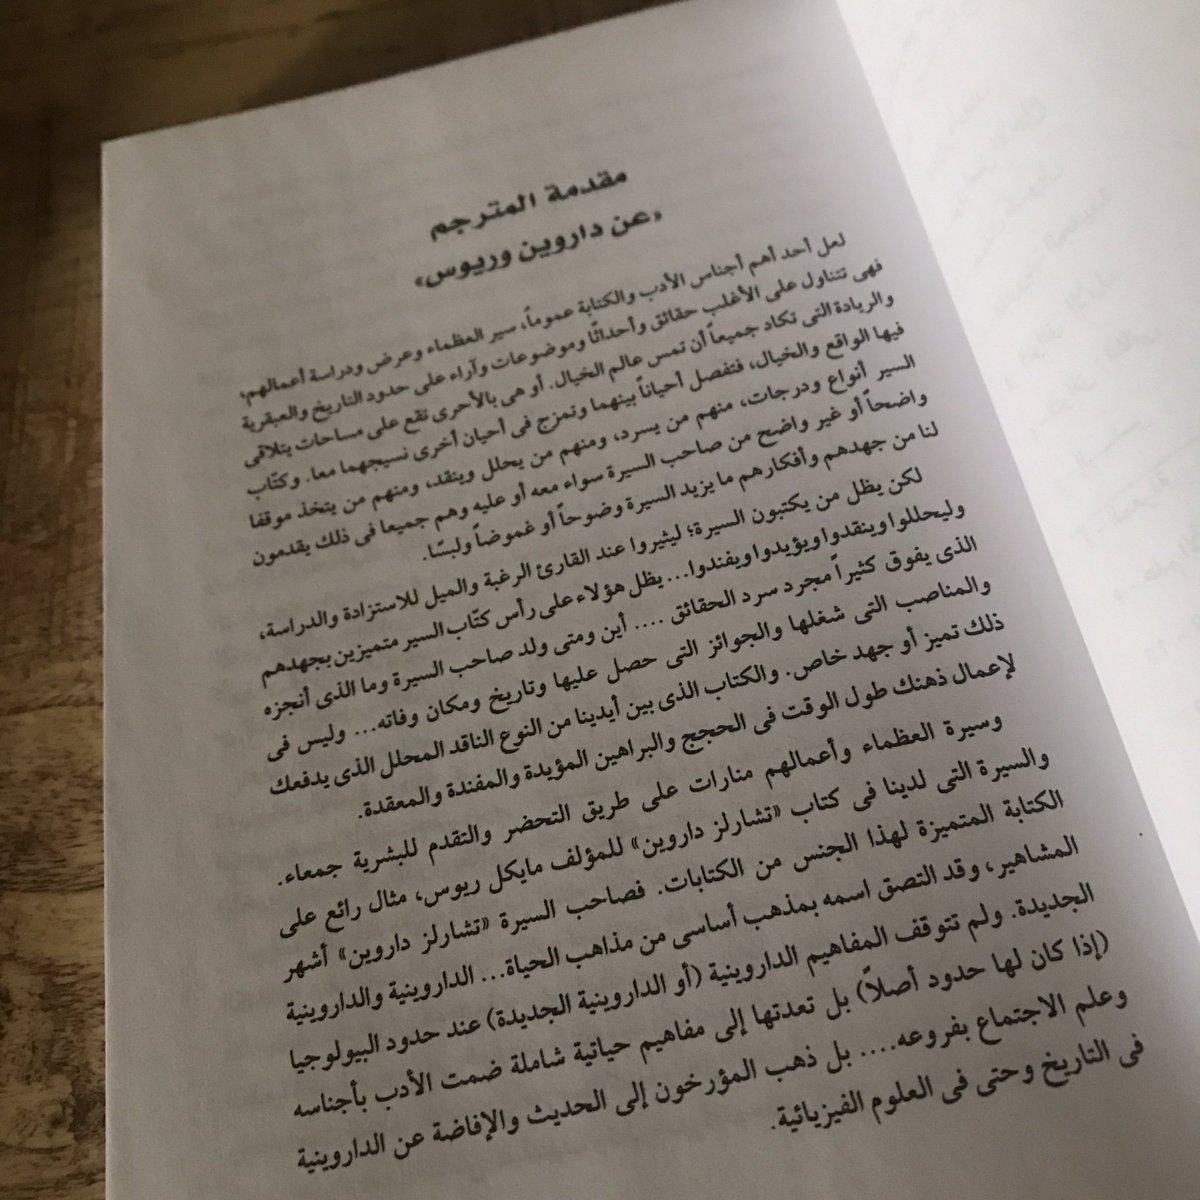 مقدمة المترجم
«عن داروين وريوس»
لعل أحد أهم أجناس الأدب والكتابة عموماً، سير العظماء وعرض ودراسة أعمالهم؛
فهى تتناول على الأغلب حقائق وأحداثًا وموضوعات وآراء على حدود التاريخ والعبقرية
والريادة التى تكاد جميعاً أن تمس عالم الخيال. أو هى بالأحرى تقع على مساحات يتلاقى
فيها الواقع والخيال، فتفصل أحياناً بينهما وتمزج فى أحيان أخرى نسيجهما معا. وكتّاب
السير أنواع ودرجات، منهم من يسرد، ومنهم من يحلل وينقد، ومنهم من يتخذ موقفا
واضحاً أو غير واضح من صاحب السيرة سواء معه أو عليه وهم جميعا فى ذلك يقدمون
لنا من جهدهم وأفكارهم ما يزيد السيرة وضوحاً أو غموضاً ولبسًا.
لكن يظل من يكتبون السيرة؛ ليثيروا عند القارئ الرغبة والميل للاستزادة والدراسة،
وليحللوا وينقدوا ويؤيدوا ويفندوا... يظل هؤلاء على رأس كتّاب السير متميزين بجهدهم
الذى يفوق كثيراً مجرد سرد الحقائق .... أين ومتى ولد صاحب السيرة وما الذى أنجزه
والمناصب التى شغلها والجوائز التى حصل عليها وتاريخ ومكان وفاته... وليس فى
ذلك تميز أو جهد خاص. والكتاب الذى بين أيدينا من النوع الناقد المحلل الذى يدفعك
لإعمال ذهنك طول الوقت فى الحجج والبراهين المؤيدة والمفندة والمعقدة.
وسيرة العظماء وأعمالهم منارات على طريق التحضر والتقدم للبشرية جمعاء.
والسيرة التى لدينا فى كتاب «تشارلز داروين» للمؤلف مايكل ريوس، مثال رائع على
الكتابة المتميزة لهذا الجنس من الكتابات. فصاحب السيرة «تشارلز داروين» أشهر
المشاهير، وقد التصق اسمه بمذهب أساسى من مذاهب الحياة... الداروينية والداروينية
الجديدة. ولم تتوقف المفاهيم الداروينية (أو الداروينية الجديدة) عند حدود البيولوجيا
(إذا كان لها حدود أصلاً) بل تعدتها إلى مفاهيم حياتية شاملة ضمت الأدب بأجناسه
وعلم الاجتماع بفروعه.... بل ذهب المؤرخون إلى الحديث والإفاضة عن الداروينية
فى التاريخ وحتى فى العلوم الفيزيائية.